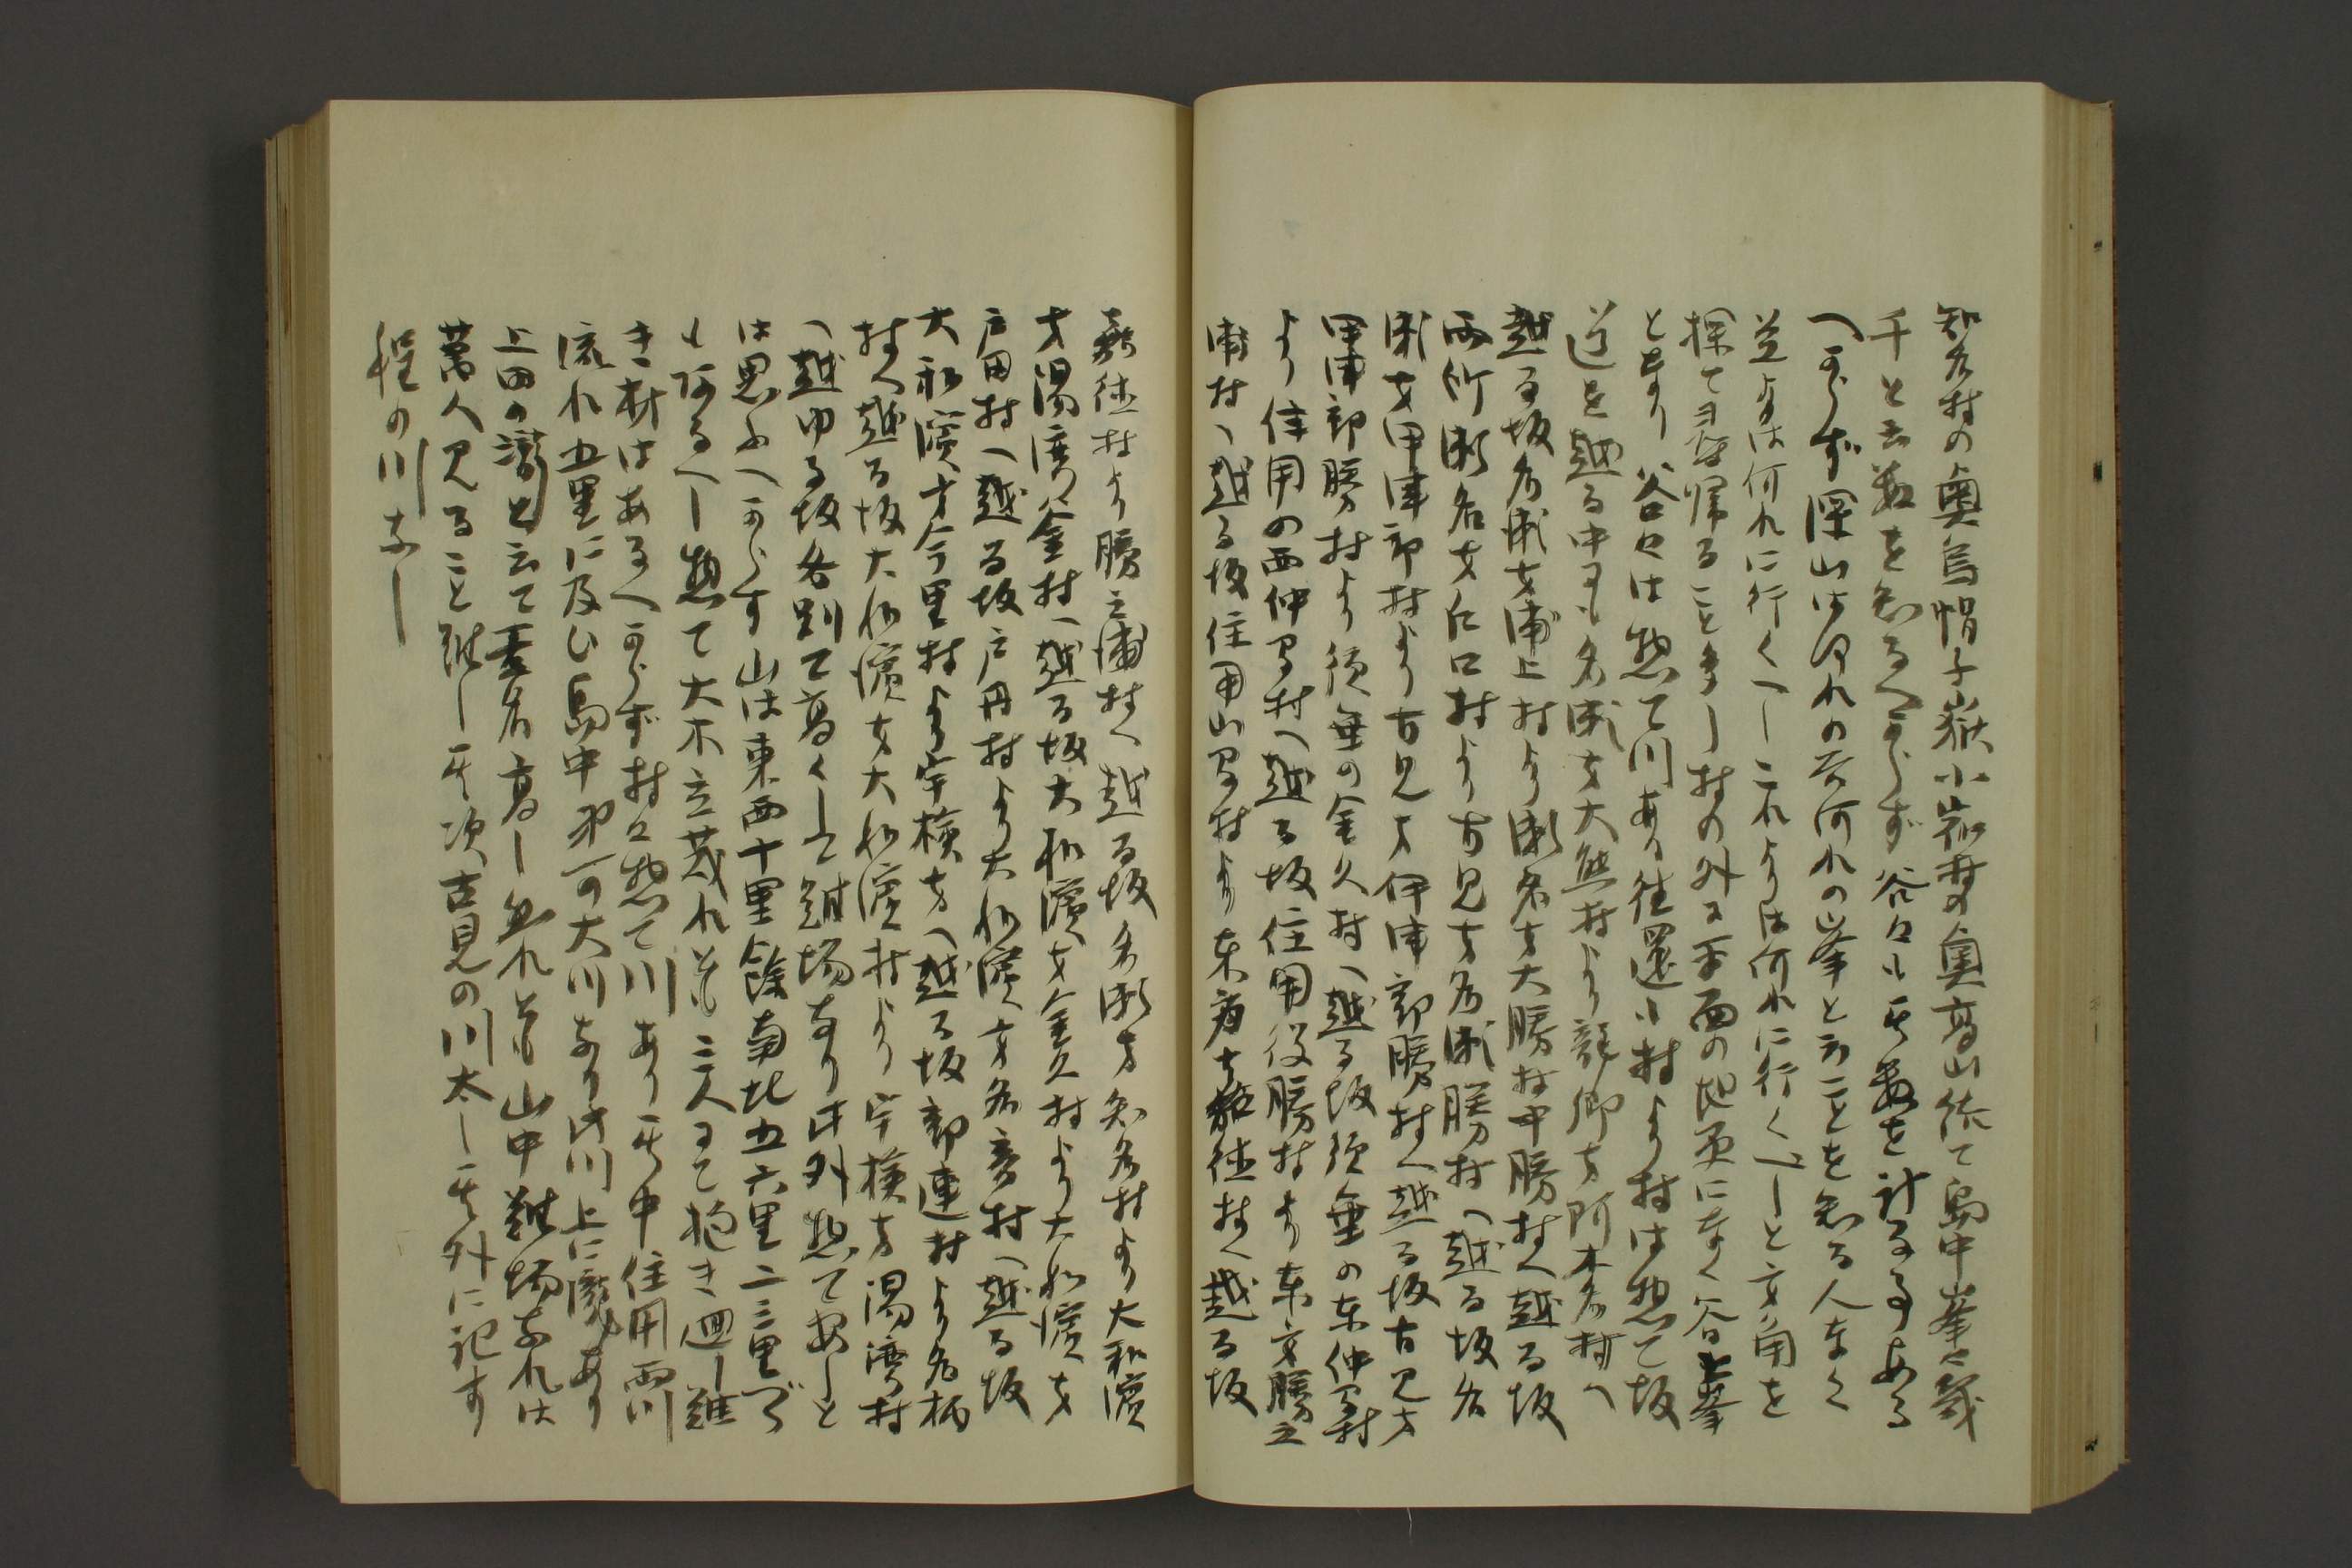 知名村の奥烏帽子嶽小宿村の奥高山統て島中峯々幾
千と云數を知るへからず谷々も其數を計る事ある
へからず深山は何れの谷何れの峯と云ことを知る人なく
並よりは何れに行くへしこれよりは何れに行くへしと方角を
探て尋帰ること多し村の外に平面の地更になく谷と峯
となり谷々は惣て川あり往還小村より村は惣て坂
道を越る中にも名瀬方大熊村より龍郷方阿木名村へ
越る坂名瀬方浦上村より瀬名方大勝村中勝村へ越る坂
両所瀬名方仁口村より古見方名瀬勝村へ越る坂名
瀬方伊津部村より古見方伊津部勝村へ越る坂古見方
伊津部勝村より須垂の金久村へ越る坂須垂の東仲間村
より住用の西仲間村へ越る坂住用役勝村より東方勝之
浦村へ越る坂住用山間村より東方嘉徳村へ越る坂
嘉徳村より勝之浦村へ越る坂名瀬方知名村より大和濱
方湯湾釜村へ越る坂大和濱方金久村より大和濱方
戸田村へ越る坂戸円村より大和濱方名音村へ越る坂
大和濱方今里村より宇検方へ越る坂部連村より名柄
村へ越る坂大和濱方大和濱村より宇検方湯湾村
へ越ゆる坂各別て高くして難場なり此外惣て安しと
は思ふへからす山は東西十里餘南北五六里二三里づゝ
も河るへし惣て大木立茂れども二人にて抱き廻し難
き材はあるへからず村々惣て川あり其中住用両川
流れ五里に及ひ島中第一の大川なり此川上に瀧あり
上田の瀧と云て名高し然れども山中難場なれは
萬人見ること難し其次古見の川太し其外に記す
程の川なし